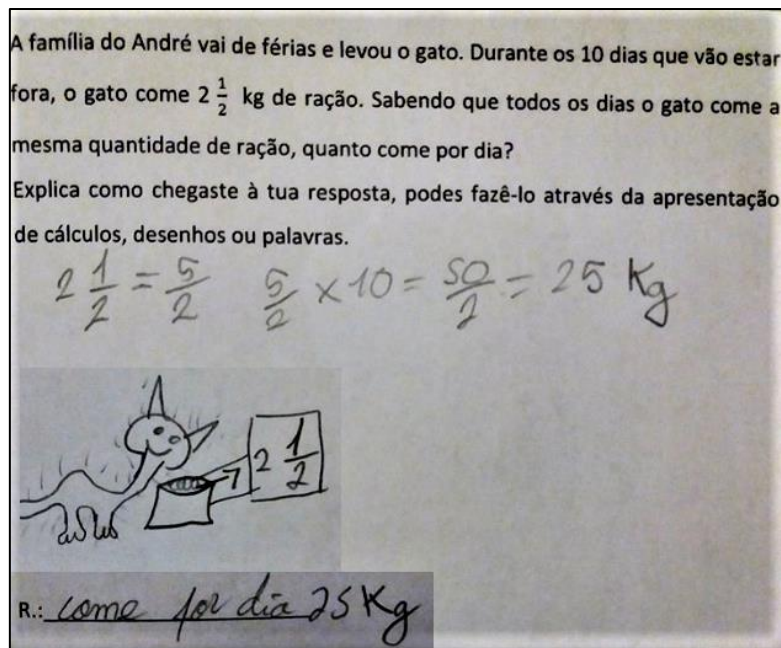 A família do André vai de férias e levou o gato. Durante os 10 dias que vão estar
fora, o gato come 2 1/2 kg de ração. Sabendo que todos os dias o gato come a
mesma quantidade de ração, quanto come por dia?
Explica como chegaste à tua resposta, podes fazê-lo através da apresentação
de cálculos, desenhos ou palavras.
2 1/2 = 5/2 5/2 × 10 = 50/2 = 25 Kg
2 1/2
R.: come por dia 25 Kg